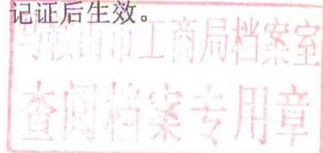 记证后生效。
马鞍山市工商局档案室
查阅档案专用章